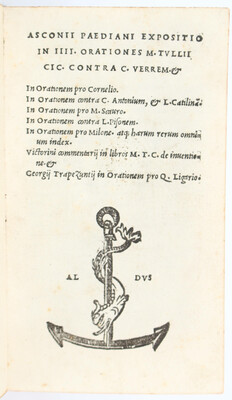 ASCONII PAEDIANI EXPOSITIO
IN IIII. ORATIONES M. TVLLII
CIC. CONTRA C. VERREM. &
In Orationem pro Cornelio.
In Orationem contra C. Antonium, & L. Catilinā.
In Orationem pro M. Scauro.
In Orationem contra L. Pisonem.
In Orationem pro Milone. atq; harum rerum omnium
um index.
Victorini commentarij in libros M. T. C. de inuentio
ne. &
Georgij Trapezuntij in Orationem pro Q. Ligario.
AL DVS